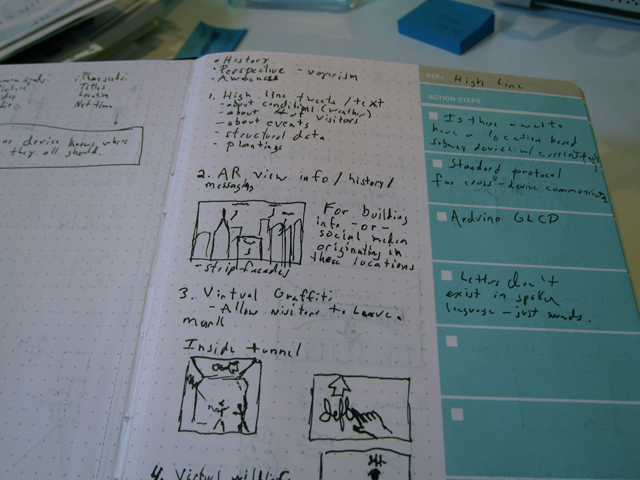 Titles
Location
Net time
device knows where
they all should.
• History
• Perspective - voyerism
• Awareness
1. High line tweets/text
- about conditions (weather)
- about # of visitors
- about events
- structural data
- plantings
2. AR view info/history/
messaging
For building
info -or-
social media
originating in
these locations
- strip facades
3. Virtual Graffiti
- Allow visitors to leave a
mark
Inside tunnel
4. Virtual
REF: High line
ACTION STEPS
Is there a way to
have a location based
subway device w/
Standard protocol
for cross-device
Arduino GLCD
Letters don't
exist in spoken
language - just words.